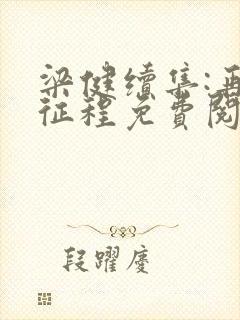 梁健續集:再
征程免費閱
段躍慶